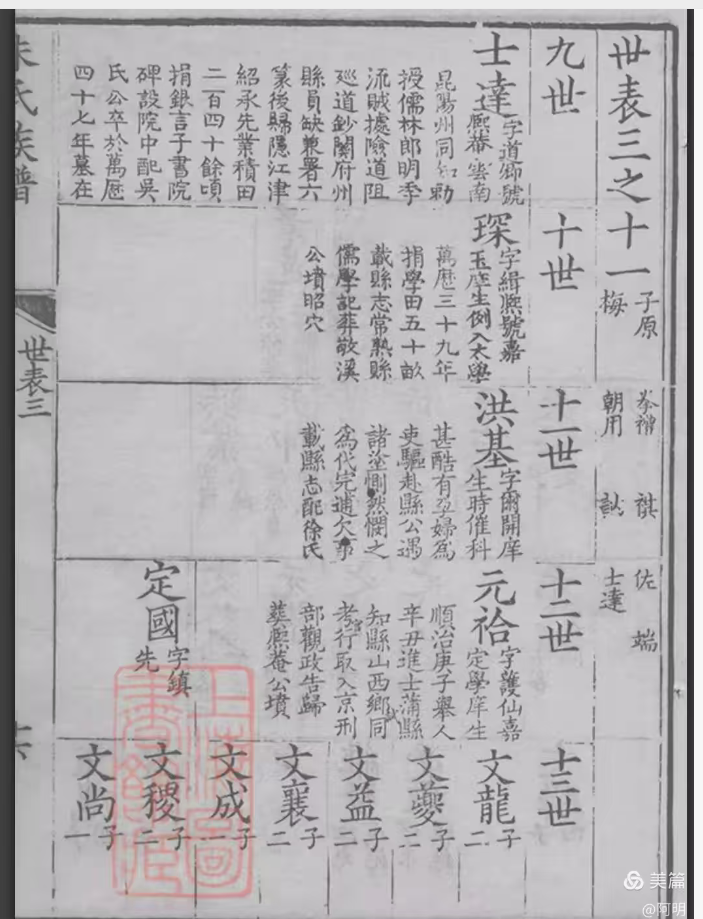 世表三之十一
子原
梅
拳襘
祺
朝用
訦
佐
端
士達
九世
十世
十一世
十二世
十三世
士達
字道卿號
熙菴雲南
昆陽州同知勅
授儒林郎明季
流賊據險道阻
廵道鈔關府州
縣員缺兼署六
篆後歸隱江津
紹承先業積田
二百四十餘頃
捐銀言子書院
碑設院中配吳
氏公卒於萬厯
四十七年墓在
琛
字緝熙號嘉
玉庠生例入太學
萬歷三十九年
捐學田五十畝
載縣志常熟縣
儒學記葬敬溪
公墳昭穴
洪基
字爾開庠
生時催科
甚酷有孕婦為
吏驅赴縣公遇
諸塗惻然憫之
為代完逋欠事
載縣志配徐氏
元祫
字護仙嘉
定學庠生
順治庚子舉人
辛丑進士蒲縣
知縣山西鄉同
考官行取入京刑
部觀政告歸
葬熙菴公墳
定國
字鎮
先
文龍
子二
文夔
子二
文益
子二
文襄
子二
文成
子一
文稷
子二
文尚
子一
朱氏族譜
世表三
上海圖
書館臧
美篇
@阿明